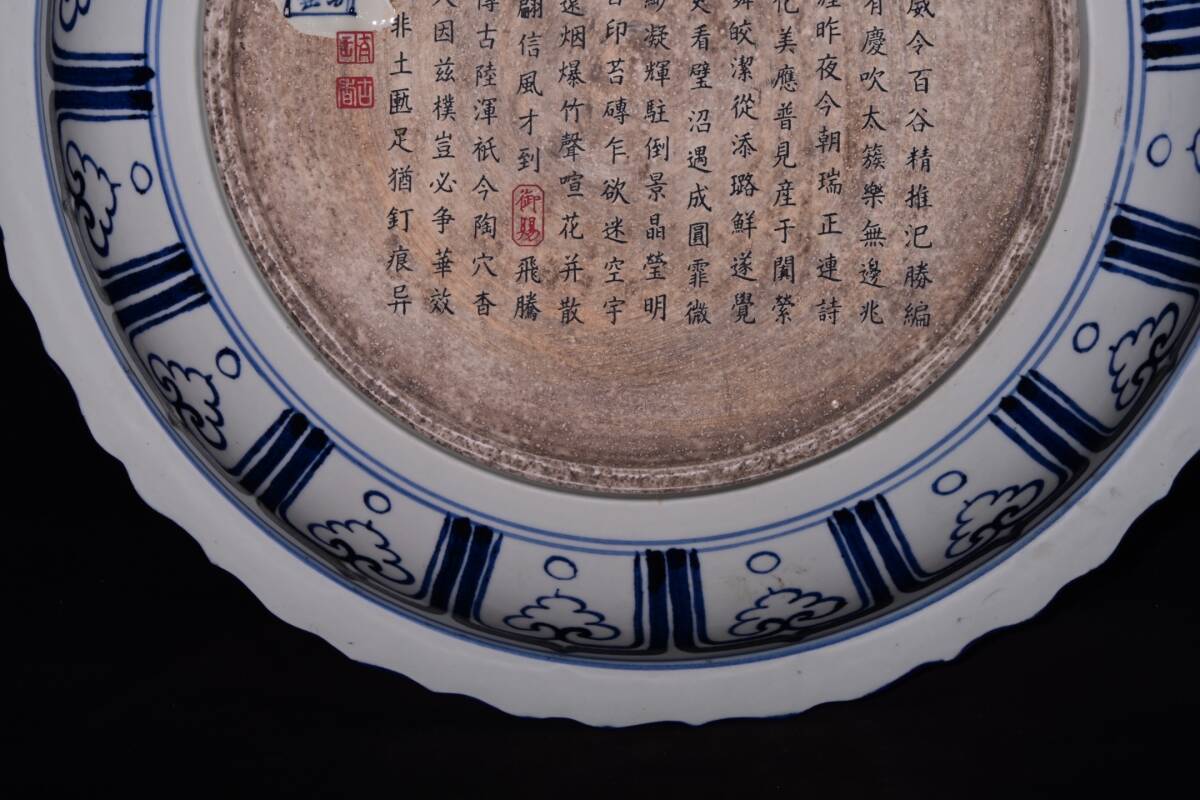 威令百谷精推汜勝編
有慶吹太簇樂無邊兆
昨夜今朝瑞正連詩
化美應普見産于闐縈
皎潔從添璐鮮遂覺
更看璧沼遇成圓霏微
紗凝輝駐倒景晶瑩明
印苔磚乍欲迷空宇
遠煙爆竹聲喧花并散
翩信風才到御賜飛騰
博古陸渾祇今陶穴杳
人因茲樸豈必争華效
非土匭足猶釘痕异